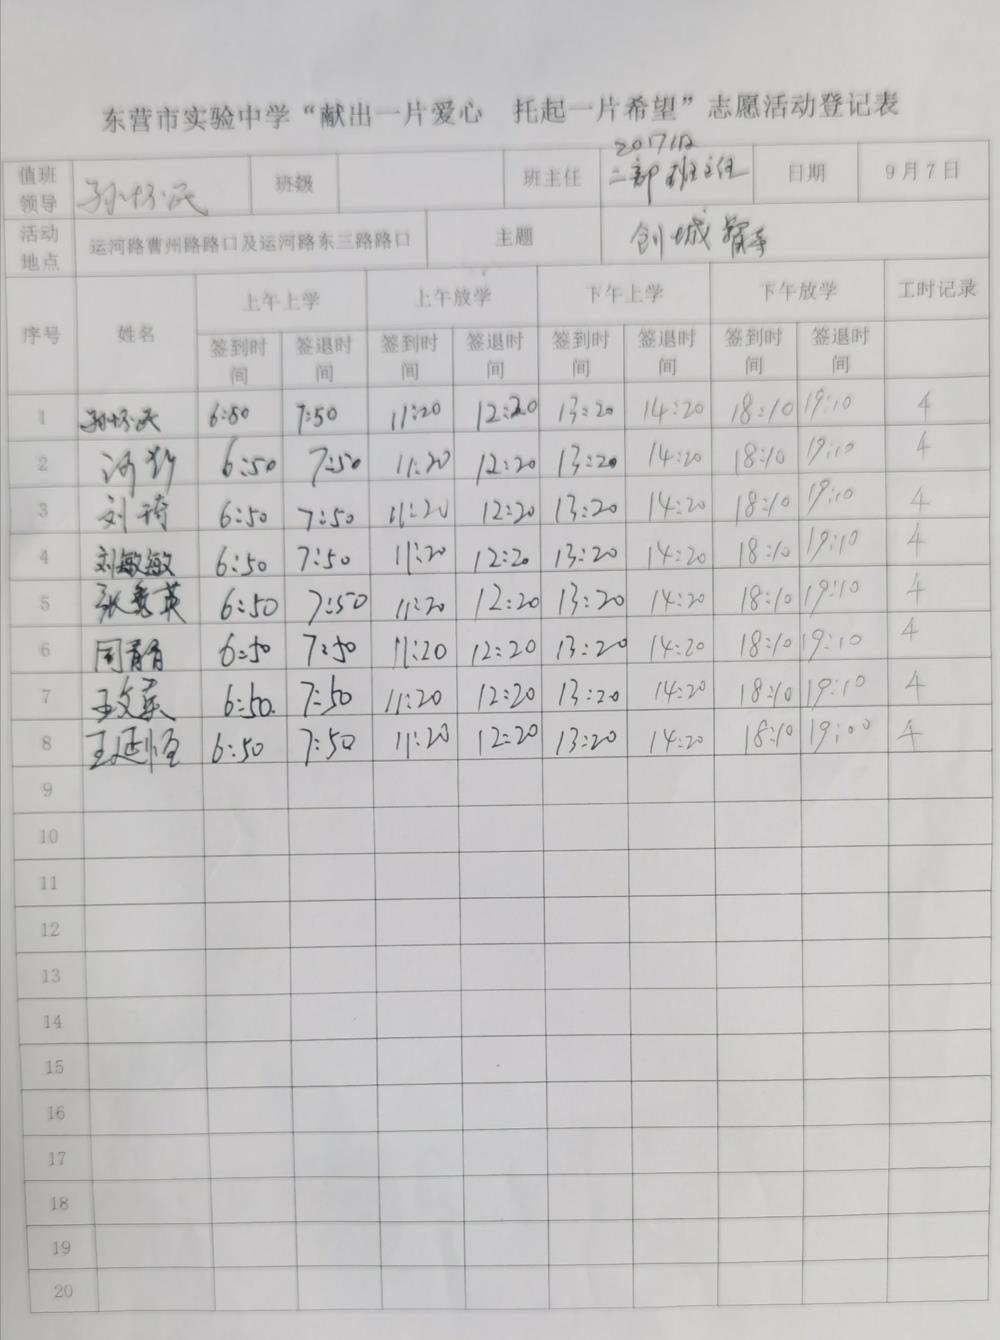 东营市实验中学“献出一片爱心 托起一片希望”志愿活动登记表
值班领导 班级 班主任 2017级二部班主任 日期 9月7日
活动地点 运河路曹州路路口及运河路东三路路口 主题 创城
序号 姓名 上午上学 上午放学 下午上学 下午放学 工时记录
签到时间 签退时间 签到时间 签退时间 签到时间 签退时间 签到时间 签退时间
1 6:50 7:50 11:20 12:20 13:20 14:20 18:10 19:10 4
2 6:50 7:50 11:20 12:20 13:20 14:20 18:10 19:10 4
3 刘琦 6:50 7:50 11:20 12:20 13:20 14:20 18:10 19:10 4
4 刘敏敏 6:50 7:50 11:20 12:20 13:20 14:20 18:10 19:10 4
5 张秀英 6:50 7:50 11:20 12:20 13:20 14:20 18:10 19:10 4
6 周青青 6:50 7:50 11:20 12:20 13:20 14:20 18:10 19:10 4
7 王文英 6:50 7:50 11:20 12:20 13:20 14:20 18:10 19:10 4
8 王延恒 6:50 7:50 11:20 12:20 13:20 14:20 18:10 19:00 4
9
10
11
12
13
14
15
16
17
18
19
20